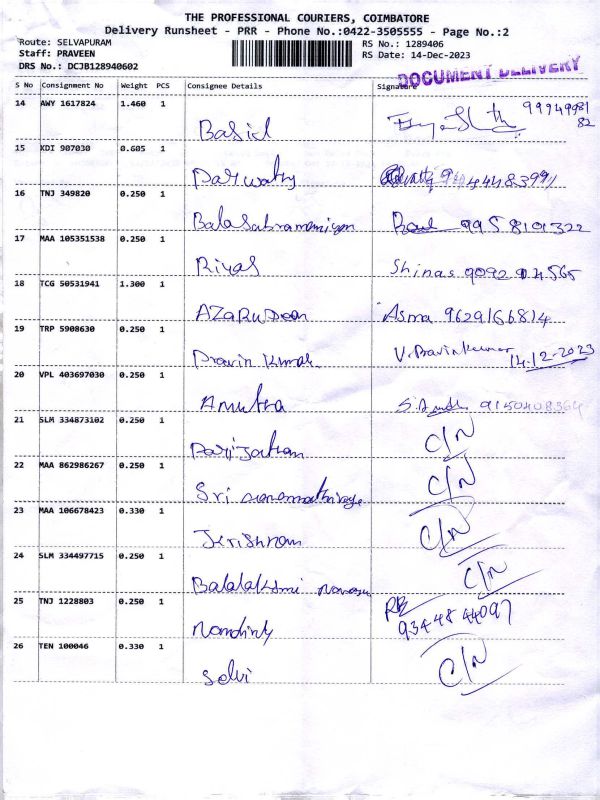 THE PROFESSIONAL COURIERS, COIMBATORE
Delivery Runsheet - PRR - Phone No.:0422-3505555 - Page No.:2
Route: SELVAPURAM
Staff: PRAVEEN
DRS No.: DCJB128940602
RS No.: 1289406
RS Date: 14-Dec-2023
DOCUMENT DELIVERY
S No Consignment No Weight PCS Consignee Details Signature
14 AWY 1617824 1.460 1
Basid 9994998182
15 KDI 907030 0.605 1
Parwathy
16 TNJ 349820 0.250 1
Balasubramaniyan 9958101322
17 MAA 105351538 0.250 1
Riyas Shinas 9092 914565
18 TCG 50531941 1.300 1
AZARUDeen Asma 9629166814
19 TRP 5908630 0.250 1
Pravin Kumar. V. Pravinkumar 14-12-2023
20 VPL 403697030 0.250 1
Amutha 9150408364
21 SLM 334873102 0.250 1
Parijatham C/N
22 MAA 862986267 0.250 1
Sri C/N
23 MAA 106678423 0.330 1
Jkrishnan C/N
24 SLM 334497715 0.250 1
Balalakshmi C/N
25 TNJ 1228803 0.250 1
Nandiny 9344844097
26 TEN 100046 0.330 1
Selvi C/N